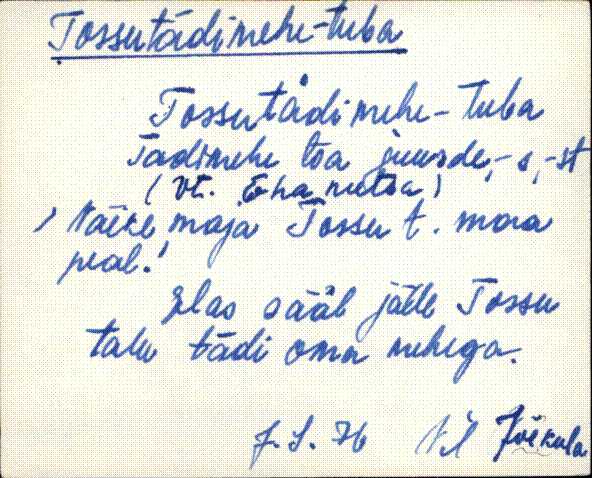 Tossutädimehe-tuba
Tossutädimehe-tuba
Tädimehe toa juurde, -s, -st
(vt. Ehanutoa)
, Väike maja Tossu t. maa
peal.'
Elas sääl jälle Tossu
talu tädi oma mehega.
J. S. 76 Nil Jõekula